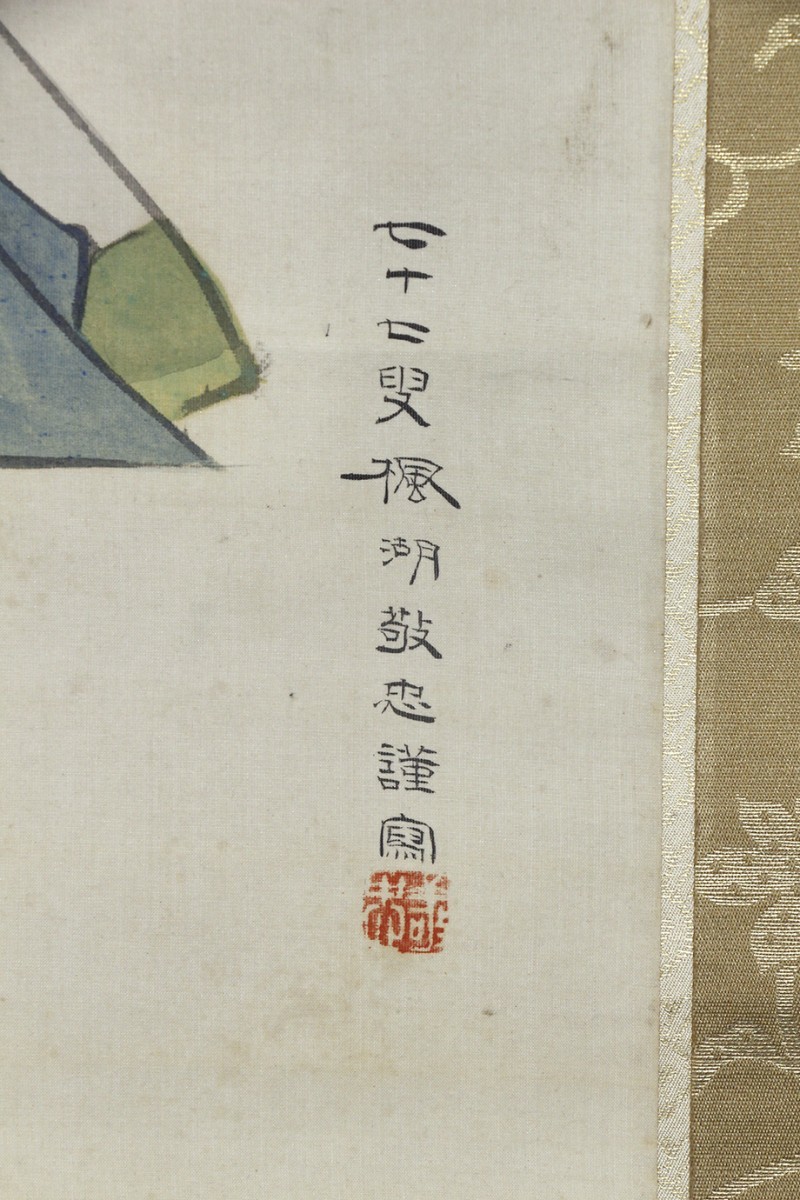 七十七叟楓湖敬忠謹寫